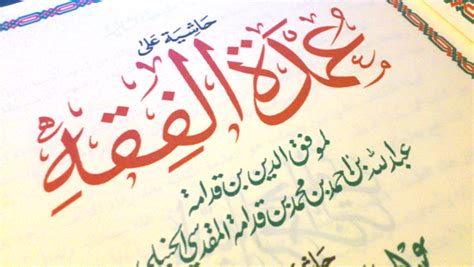 حَاشِيَة عَلَىٰ
عُمْدَةُ الفِقْهِ
لموفق الدين بن قدامة
عبدالله بن أحمد بن محمد بن قدامة المقدسي الحنبلي
حاشية